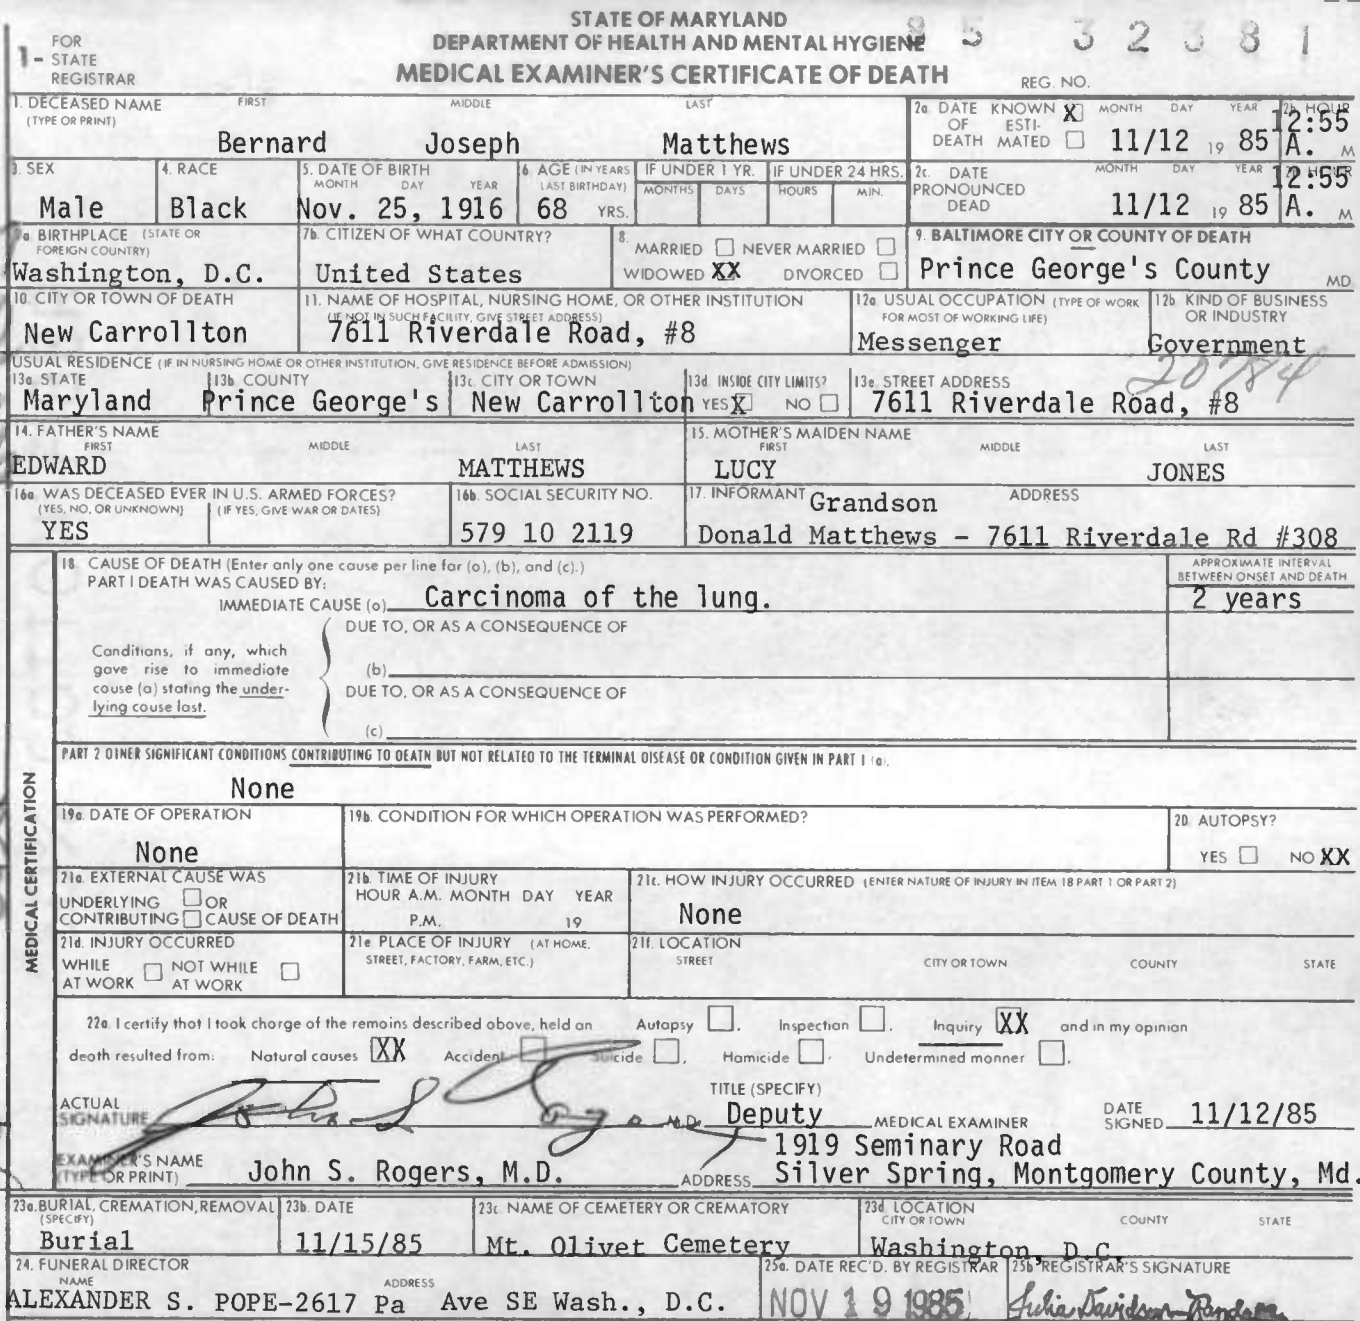 STATE OF MARYLAND
DEPARTMENT OF HEALTH AND MENTAL HYGIENE
MEDICAL EXAMINER'S CERTIFICATE OF DEATH
85 32381
REG. NO.
1- FOR STATE REGISTRAR
1. DECEASED NAME (TYPE OR PRINT) FIRST MIDDLE LAST
Bernard Joseph Matthews
2a. DATE OF DEATH KNOWN X ESTIMATED MONTH DAY YEAR 2b. HOUR
11/12 19 85 12:55 A. M
3. SEX
Male
4. RACE
Black
5. DATE OF BIRTH MONTH DAY YEAR
Nov. 25, 1916
6. AGE (IN YEARS LAST BIRTHDAY)
68 YRS.
IF UNDER 1 YR. MONTHS DAYS
IF UNDER 24 HRS. HOURS MIN.
2c. DATE PRONOUNCED DEAD MONTH DAY YEAR HOUR
11/12 19 85 12:55 A. M
7a. BIRTHPLACE (STATE OR FOREIGN COUNTRY)
Washington, D.C.
7b. CITIZEN OF WHAT COUNTRY?
United States
8. MARRIED NEVER MARRIED
WIDOWED XX DIVORCED
9. BALTIMORE CITY OR COUNTY OF DEATH
Prince George's County MD.
10. CITY OR TOWN OF DEATH
New Carrollton
11. NAME OF HOSPITAL, NURSING HOME, OR OTHER INSTITUTION
(IF NOT IN SUCH FACILITY, GIVE STREET ADDRESS)
7611 Riverdale Road, #8
12a. USUAL OCCUPATION (TYPE OF WORK FOR MOST OF WORKING LIFE)
Messenger
12b. KIND OF BUSINESS OR INDUSTRY
Government
USUAL RESIDENCE (IF IN NURSING HOME OR OTHER INSTITUTION, GIVE RESIDENCE BEFORE ADMISSION)
13a. STATE
Maryland
13b. COUNTY
Prince George's
13c. CITY OR TOWN
New Carrollton
13d. INSIDE CITY LIMITS?
YES X NO
13e. STREET ADDRESS
20784
7611 Riverdale Road, #8
14. FATHER'S NAME FIRST MIDDLE LAST
EDWARD MATTHEWS
15. MOTHER'S MAIDEN NAME FIRST MIDDLE LAST
LUCY JONES
16a. WAS DECEASED EVER IN U.S. ARMED FORCES?
(YES, NO, OR UNKNOWN) (IF YES, GIVE WAR OR DATES)
YES
16b. SOCIAL SECURITY NO.
579 10 2119
17. INFORMANT ADDRESS
Grandson
Donald Matthews - 7611 Riverdale Rd #308
MEDICAL CERTIFICATION
18. CAUSE OF DEATH (Enter only one cause per line for (a), (b), and (c).)
PART I DEATH WAS CAUSED BY:
APPROXIMATE INTERVAL BETWEEN ONSET AND DEATH
IMMEDIATE CAUSE (a) Carcinoma of the lung. 2 years
DUE TO, OR AS A CONSEQUENCE OF
Conditions, if any, which gave rise to immediate cause (a) stating the underlying cause last.
(b)
DUE TO, OR AS A CONSEQUENCE OF
(c)
PART 2 OTHER SIGNIFICANT CONDITIONS CONTRIBUTING TO DEATH BUT NOT RELATED TO THE TERMINAL DISEASE OR CONDITION GIVEN IN PART I (a).
None
19a. DATE OF OPERATION
None
19b. CONDITION FOR WHICH OPERATION WAS PERFORMED?
20. AUTOPSY?
YES NO XX
21a. EXTERNAL CAUSE WAS
UNDERLYING OR
CONTRIBUTING CAUSE OF DEATH
21b. TIME OF INJURY
HOUR A.M. MONTH DAY YEAR
P.M. 19
21c. HOW INJURY OCCURRED (ENTER NATURE OF INJURY IN ITEM 18 PART 1 OR PART 2)
None
21d. INJURY OCCURRED
WHILE AT WORK NOT WHILE AT WORK
21e PLACE OF INJURY (AT HOME, STREET, FACTORY, FARM, ETC.)
21f. LOCATION
STREET CITY OR TOWN COUNTY STATE
22a. I certify that I took charge of the remains described above, held an Autopsy , Inspection , Inquiry XX and in my opinion
death resulted from: Natural causes XX Accident Suicide , Homicide . Undetermined manner .
ACTUAL SIGNATURE John S Rogers M.D.
TITLE (SPECIFY)
Deputy MEDICAL EXAMINER
DATE SIGNED 11/12/85
EXAMINER'S NAME (TYPE OR PRINT) John S. Rogers, M.D.
1919 Seminary Road
ADDRESS Silver Spring, Montgomery County, Md.
23a. BURIAL, CREMATION, REMOVAL (SPECIFY)
Burial
23b. DATE
11/15/85
23c. NAME OF CEMETERY OR CREMATORY
Mt. Olivet Cemetery
23d. LOCATION CITY OR TOWN COUNTY STATE
Washington, D.C.
24. FUNERAL DIRECTOR
NAME ADDRESS
ALEXANDER S. POPE-2617 Pa Ave SE Wash., D.C.
25a. DATE REC'D. BY REGISTRAR
NOV 19 1985
25b. REGISTRAR'S SIGNATURE
Julia Davidson-Randall